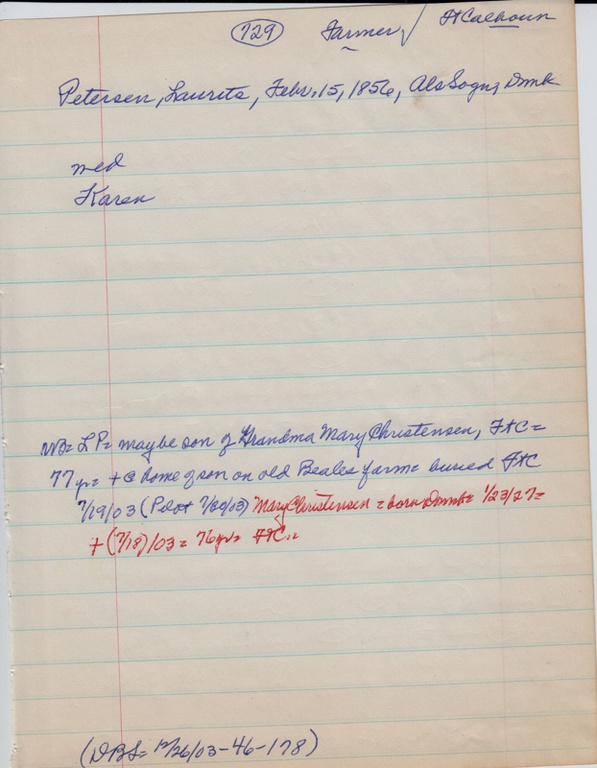 729 Farmer / Ft Calhoun
Petersen, Laurits, Febr. 15, 1856, Als Sogn, Dmk
med
Karen
NB = L P = maybe son of Grandma Mary Christensen, FtC =
77 yr = + @ home of son on old Beales farm = buried FtC
7/19/03 (Pilot 7/30/03) Mary Christensen = born Dmk = 1/23/27 =
+ (7/18)/03 = 76 yr = FtC..
(DBS = 12/26/03-46-178)